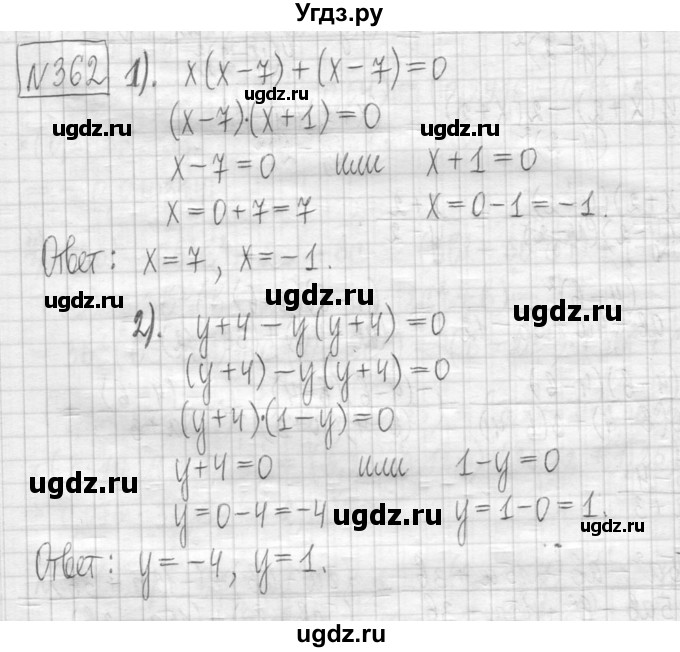 Угдз.ру
№362 1). x(x-7)+(x-7)=0
ugdz.ru
(x-7)·(x+1)=0
ugdz.ru ugdz.ru
x-7=0 или x+1=0
x=0+7=7 x=0-1=-1.
Ответ: x=7, x=-1.
ugdz.ru ugdz.ru ugdz.ru
2). y+4-y(y+4)=0
(y+4)-y(y+4)=0
(y+4)·(1-y)=0
y+4=0 или 1-y=0
ugdz.ru ugdz.ru ugdz.ru
y=0-4=-4 y=1-0=1.
Ответ: y=-4, y=1.
ugdz.ru